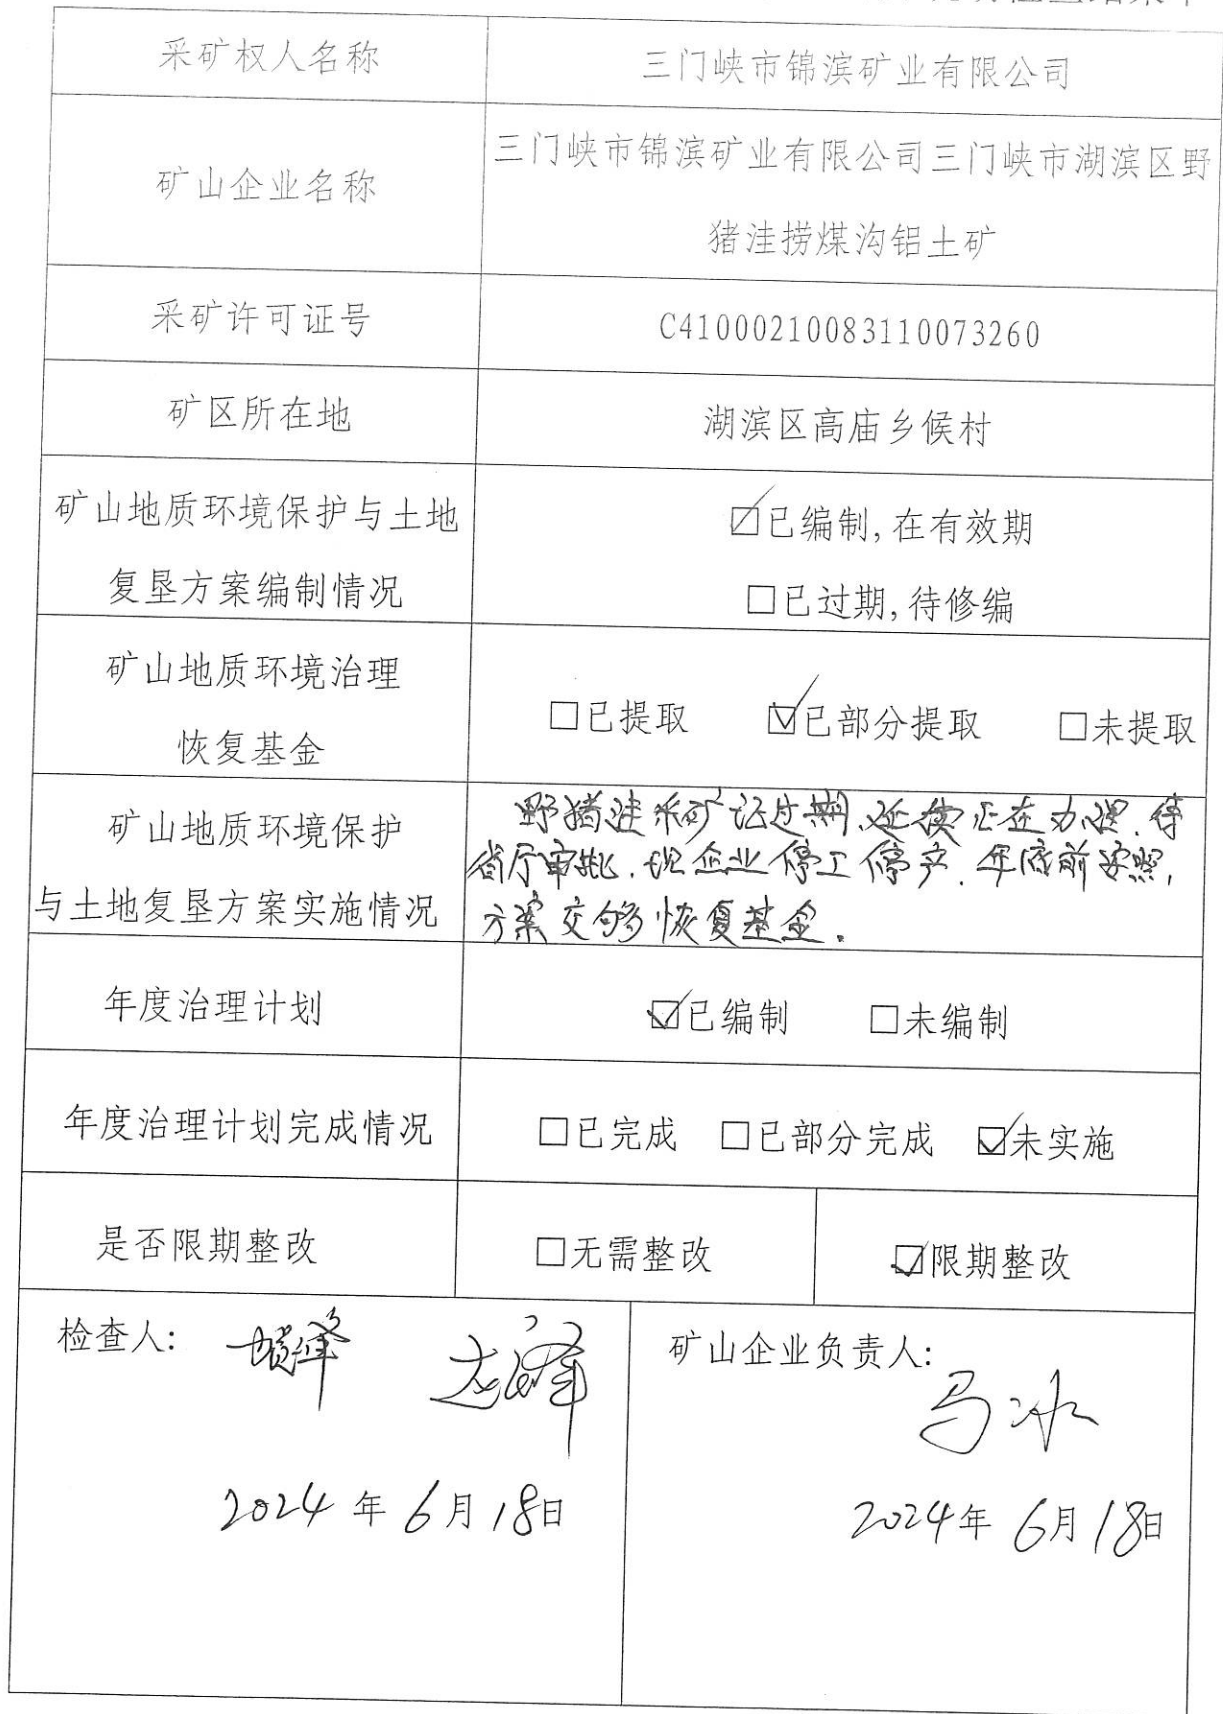 采矿权人名称 三门峡市锦滨矿业有限公司
三门峡市锦滨矿业有限公司三门峡市湖滨区野
矿山企业名称
猪洼捞煤沟铝土矿
采矿许可证号 C41000210083110073260
矿区所在地 湖滨区高庙乡候村
矿山地质环境保护与土地 ☑已编制,在有效期
复垦方案编制情况 □已过期,待修编
矿山地质环境治理
恢复基金 □已提取 ☑已部分提取 □未提取
矿山地质环境保护
与土地复垦方案实施情况
野猪洼采矿证过期,延续正在办理.待
省厅审批.现企业停工停产.年底前按照,
方案交够恢复基金.
年度治理计划 ☑已编制 □未编制
年度治理计划完成情况 □已完成 □已部分完成 ☑未实施
是否限期整改 □无需整改 ☑限期整改
检查人:
2024年6月18日
矿山企业负责人:
马冰
2024年6月18日